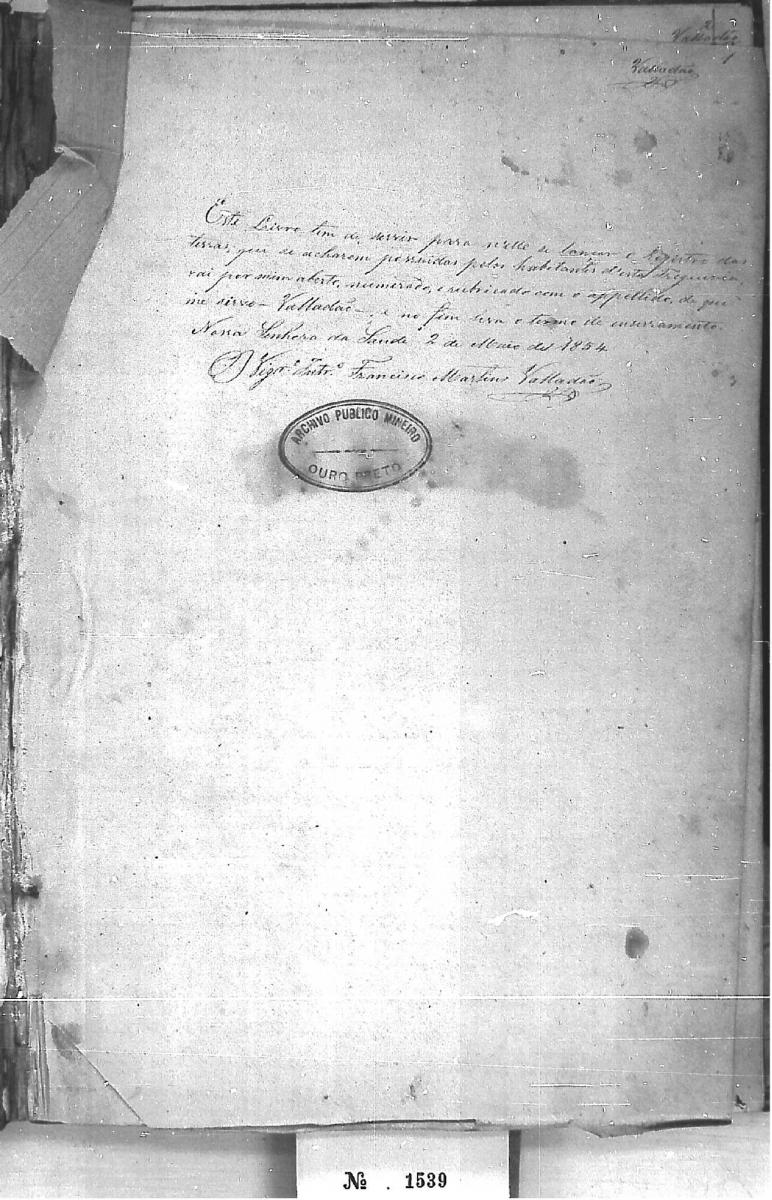 2
Valladão
1
Valladão
Este Livro tem de servir para nelle se lançar o Registro das
terras, que se acharem possuidas pelos habitantes d'esta Freguesia,
vai por mim aberto, numerado, e rubricado com o appellido, de que
me sirvo - Valladão -, e no fim leva o termo de enserramento.
Nossa Senhora da Saude 2 de Maio de 1854
O Vigr.º Francisco Martins Valladão
ARCHIVO PUBLICO MINEIRO
OURO PRETO
Nº . 1539